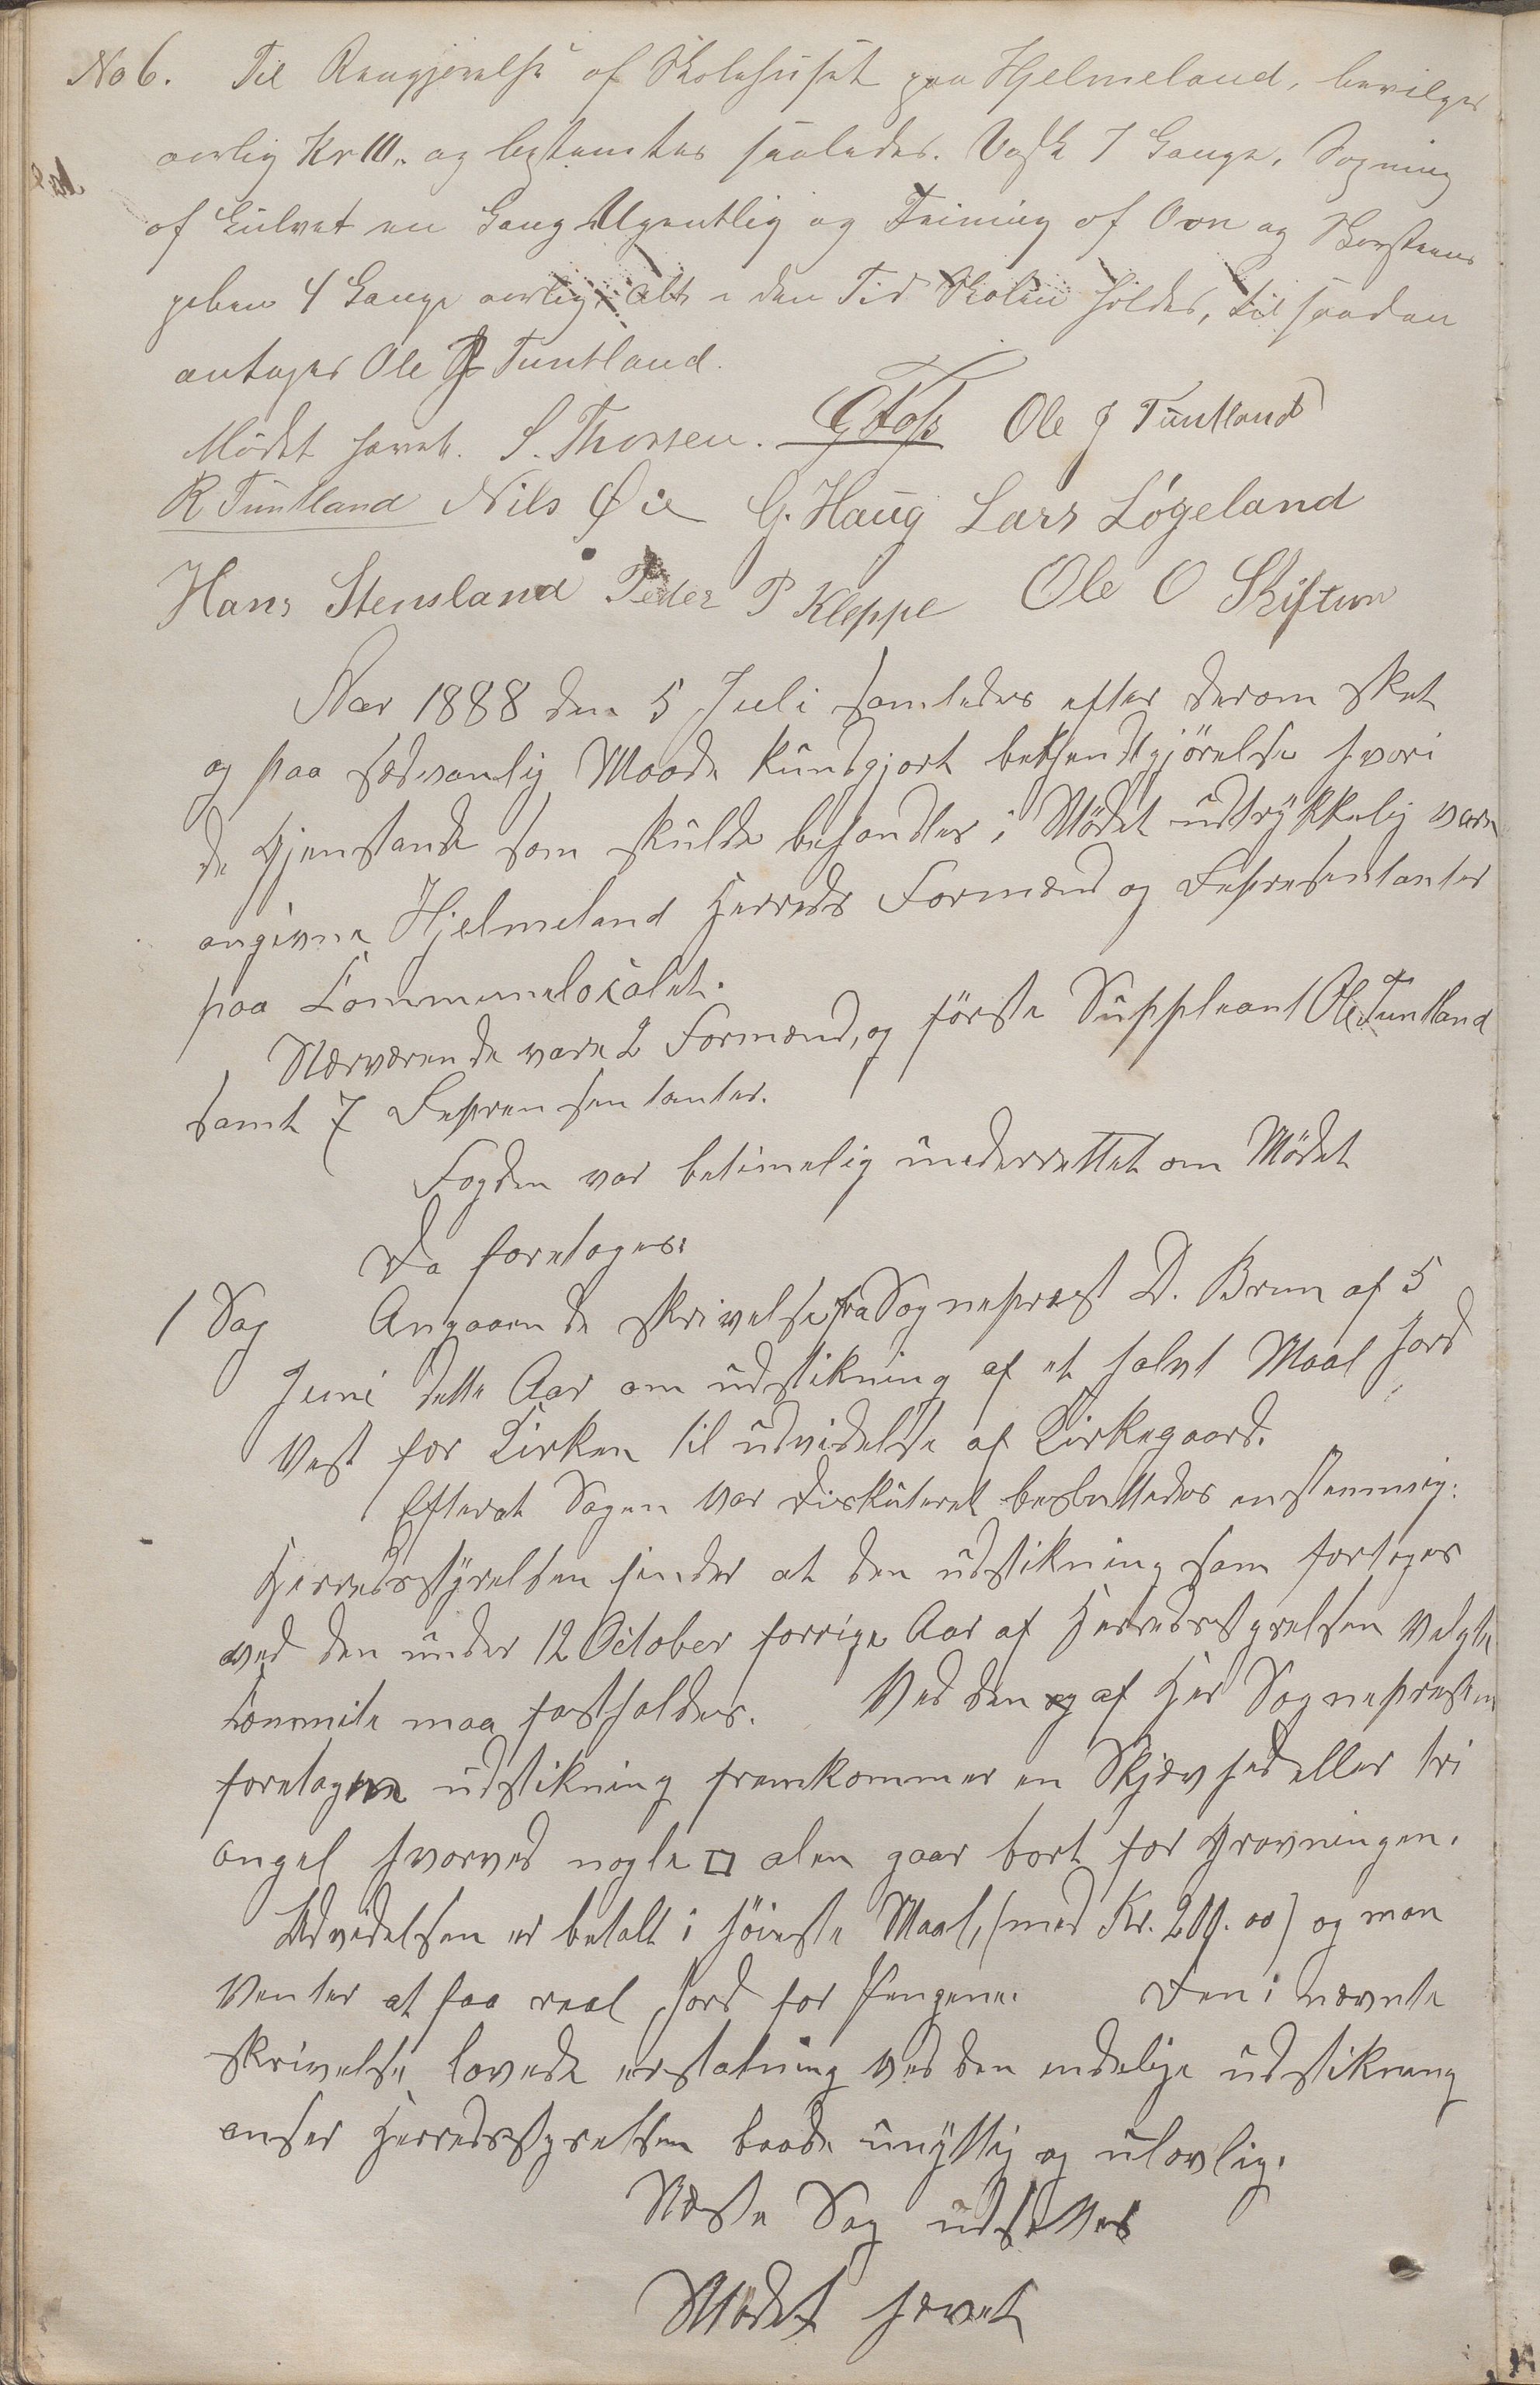 No 6. Til Rengjørelse af Skolehuset paa Hjelmeland, bevilges
aarlig Kr 10,, og bestemtes saaledes. Vask 7 Gange, Sopning
af Gulvet en Gang Ugentlig og Feining af Ovn og Skorsteens
piben 4 Gange aarlig, alt i den Tid Skolen holdes, til saadan
antages Ole J Tuntland.
Mödet hævet. S. Thorsen. G Foss Ole J Tuntland
R Tuntland Nils Øie G. Haug Lars Løgeland
Hans Stensland Peder P Kleppe Ole O Skiftun
Aar 1888 den 5 Juli samledes efter derom sket
og paa sedvanlig Maade kundgjort bekjendtgjörelse hvori
de Gjenstande som skulde behandles i Mödet udtrykkelig vare
angivne Hjelmeland Herreds Formænd og Representanter
paa Kommunelocalet.
Nærværende vare 2 Formænd, og förste Suppleant Ole J Tuntland
samt 7 Reprensentanter.
Fogden var betimelig underrettet om Mödet
Da foretoges:
1 Sag Angaaende skrivelse fra Sogneprest D. Brun af 5
Juni dette Aar om udstikning af et halvt Maal Jord
Vest for Kirken til udvidelse af Kirkegaard.
Efterat Sagen var diskuteret besluttedes enstemmig:
Herredsstyrelsen finder at den udstikning som fortoges
ved den under 12 October forrige Aar af Herredsstyrelsen valgte
Kommite maa fastholdes. Ved den af Her Sognepresten
foretagne udstikning fremkommer en Skjævhed eller tri
angel hvorved nogle □ alen gaar bort for Gravningen.
Udvidelsen er betalt i höieste Maal, (med Kr. 200.00) og man
venter at faa real Jord for Pengene. Den i nævnte
skrivelse lovede erstatning ved den endelige udstikning
anser Herredsstyrelsen baade unyttig og ulovlig.
Næste Sag udsættes
Mödet hævet